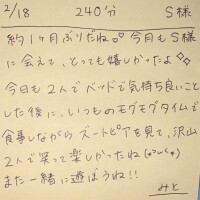 2/18 240分 S様
約1ヶ月ぶりだね♡♡ 今月もS様
に会えて、とっても嬉しかったよ◇◇
今日も2人でベッドで気持ち良いこと
した後に、いつものモグモグタイムで
食事しながらズートピアを見て、沢山
2人で笑って楽しかったね(*>ω<*)
また一緒に遊ぼうね!!
みと